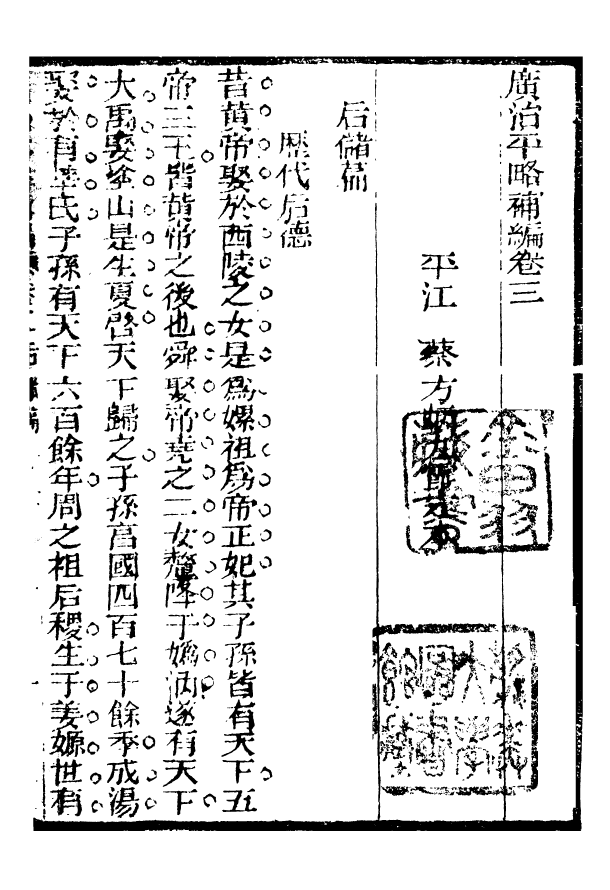 廣治平略補編卷三
平江 蔡方炳九霞
后儲篇
歷代后德
昔黄帝娶於西陵之女是爲嫘祖爲帝正妃其子孫皆有天下五
帝三王皆黄帝之後也舜娶帝堯之二女釐降于嬀汭遂有天下
大禹娶塗山是生夏啓天下歸之子孫富國四百七十餘年成湯
娶於有㜪氏子孫有天下六百餘年周之祖后稷生于姜嫄世有